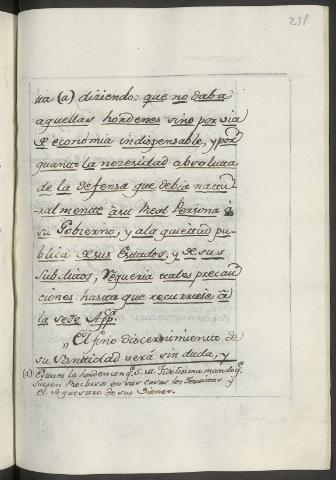 291
tta (a) diziendo: que no daba
aquellas hordenes sino por via
economia indispensable, y por
quanto la nezesidad absoluta
de la defensa que debia natu
ral mente à su Real Persona
su Gobierno, y ala quietud pu-
blica de sus Estados, y de sus
Subditos, requeria tales precau
ciones hasta que recurriese à
la sede App.ca
„El fino discernimiento de
su Santidad verá sin duda, y
(a) Esta es la horden con q.e S. M. Fidelisima mando q.e
fuesen reclusos en sus casas los Jesuitas y
el Sequestro de sus Bienes.